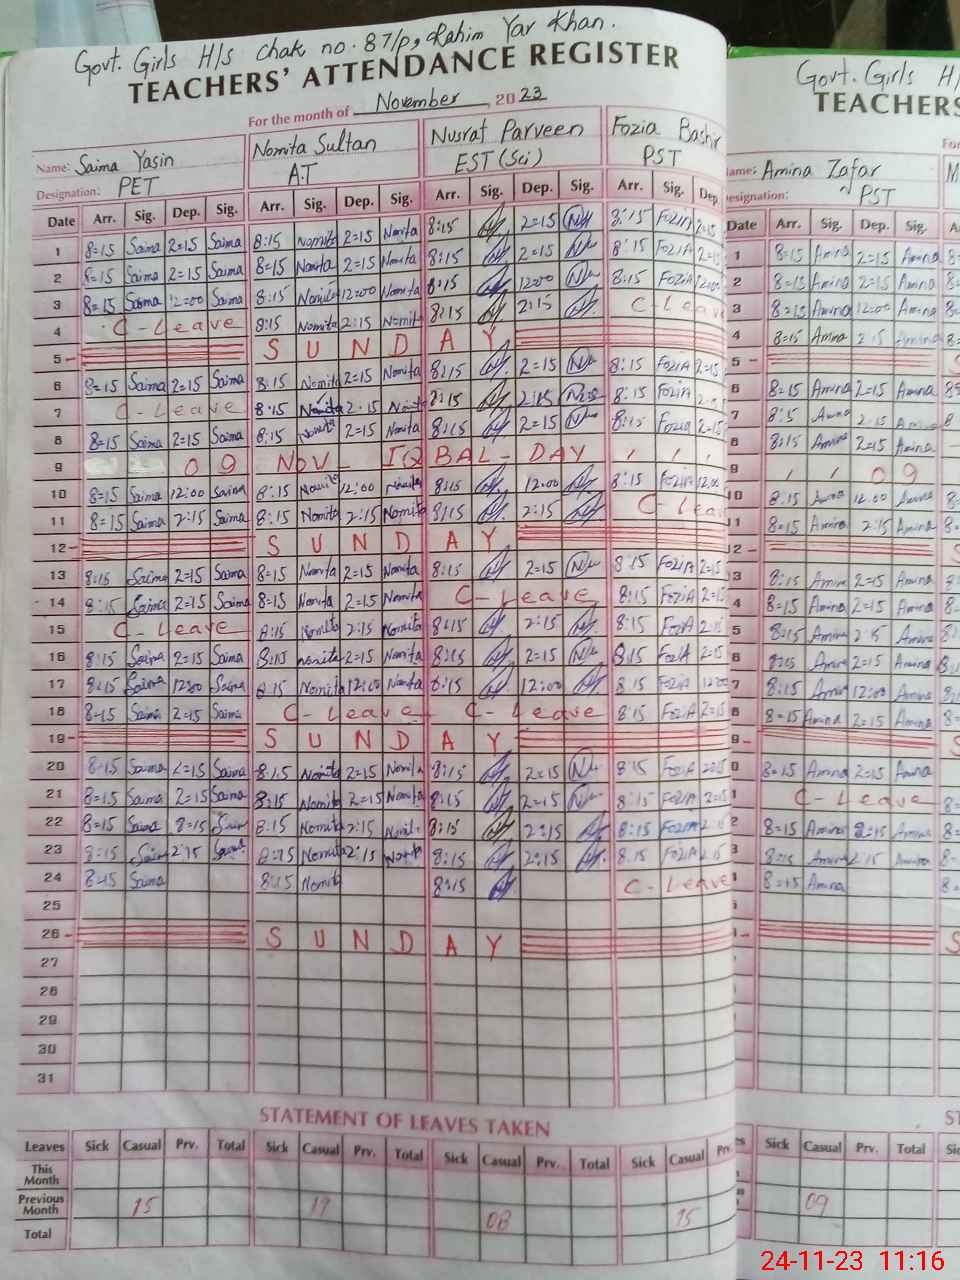 Govt. Girls H/S chak no. 87/p, Rahim Yar Khan.
TEACHERS' ATTENDANCE REGISTER
For the month of November, 2023
Name: Saima Yasin Nomita Sultan Nusrat Parveen Fozia Bashir
Designation: PET A.T EST (Sci) PST
Date Arr. Sig. Dep. Sig. Arr. Sig. Dep. Sig. Arr. Sig. Dep. Sig. Arr. Sig. Dep
1 8=15 Saima 2=15 Saima 8:15 Nomita 2:15 Nomita 8:15 2=15 8:15 FoziA 2=15
2 8=15 Saima 2=15 Saima 8=15 Nomita 2:15 Nomita 8:15 2=15 8:15 FoziA 2=15
3 8=15 Saima 12=00 Saima 8:15 Nomita 12=00 Nomita 8:15 12:00 8:15 FoziA 12:00
4 C-Leave 8:15 Nomita 2:15 Nomita 8:15 2:15 C Leav
5 SUNDAY
6 8=15 Saima 2=15 Saima 8:15 Nomita 2=15 Nomita 8:15 2=15 8:15 FoziA 2=15
7 C-Leave 8:15 Nomita 2:15 Nomita 8:15 2:15 8:15 FoziA
8 8=15 Saima 2=15 Saima 8:15 Nomita 2=15 Nomita 8:15 2=15 8:15 Fozia 2=15
9 09 NOV - IQBAL - DAY
10 8=15 Saima 12:00 Saima 8:15 Nomita 12:00 Nomita 8:15 12:00 8:15 FoziA 12:00
11 8=15 Saima 2:15 Saima 8:15 Nomita 2:15 Nomita 8:15 2:15 C-Leav
12 SUNDAY
13 8:15 Saima 2=15 Saima 8=15 Nomita 2=15 Nomita 8:15 2=15 8:15 FoziA 2=15
14 8:15 Saima 2=15 Saima 8=15 Nomita 2=15 Nomita C-Leave 8:15 FoziA 2=15
15 C-Leave 8:15 Nomita 2:15 Nomita 8:15 2:15 8:15 FoziA 2:15
16 8:15 Saima 2=15 Saima 8:15 Nomita 2=15 Nomita 8:15 2=15 8:15 FoziA 2=15
17 8:15 Saima 12:00 Saima 8:15 Nomita 12:00 Nomita 8:15 12:00 8:15 FoziA 12:00
18 8=15 Saima 2=15 Saima C-Leave - C-Leave 8:15 FoziA 2=15
19 SUNDAY
20 8:15 Saima 2=15 Saima 8:15 Nomita 2=15 Nomita 8:15 2:15 8:15 FoziA 2:15
21 8=15 Saima 2=15 Saima 8:15 Nomita 2=15 Nomita 8:15 2=15 8:15 FoziA 2=15
22 8=15 Saima 8=15 Saima 8:15 Nomita 2:15 Nomita 8:15 2:15 8:15 FoziA 2:15
23 8:15 Saima 2:15 Saima 8:15 Nomita 2:15 Nomita 8:15 2:15 8:15 FoziA 2:15
24 8=15 Saima 8:15 Nomita 8:15 C-Leave
25
26 SUNDAY
27
28
29
30
31
STATEMENT OF LEAVES TAKEN
Leaves Sick Casual Prv. Total Sick Casual Prv. Total Sick Casual Prv. Total Sick Casual Prv
This Month
Previous Month 15 19 08 15
Total
Govt. Girls H/
TEACHERS
For
ame: Amina Zafar M
esignation: PST
Date Arr. Sig. Dep. Sig. A
1 8=15 Amina 2=15 Amina
2 8=15 Amina 2=15 Amina
3 8=15 Amina 12:00 Amina
4 8=15 Amina 2:15 Amina
5
6 8=15 Amina 2=15 Amina
7 8:15 Amina 2:15 Amina
8 8:15 Amina 2=15 Amina
9 09
10 8:15 Amina 12:00 Amina
11 8=15 Amina 2:15 Amina
12
3 8:15 Amina 2=15 Amina
4 8=15 Amina 2=15 Amina
5 8:15 Amina 2:15 Amina
6 8:15 Amina 2=15 Amina
7 8:15 Amina 12:00 Amina
8 8=15 Amina 2=15 Amina
9
0 8=15 Amina 2=15 Amina
1 C-Leave
2 8=15 Amina 2=15 Amina
3 8:15 Amina 2:15 Amina
8=15 Amina
ST
Sick Casual Prv. Total Sic
09
24-11-23 11:16